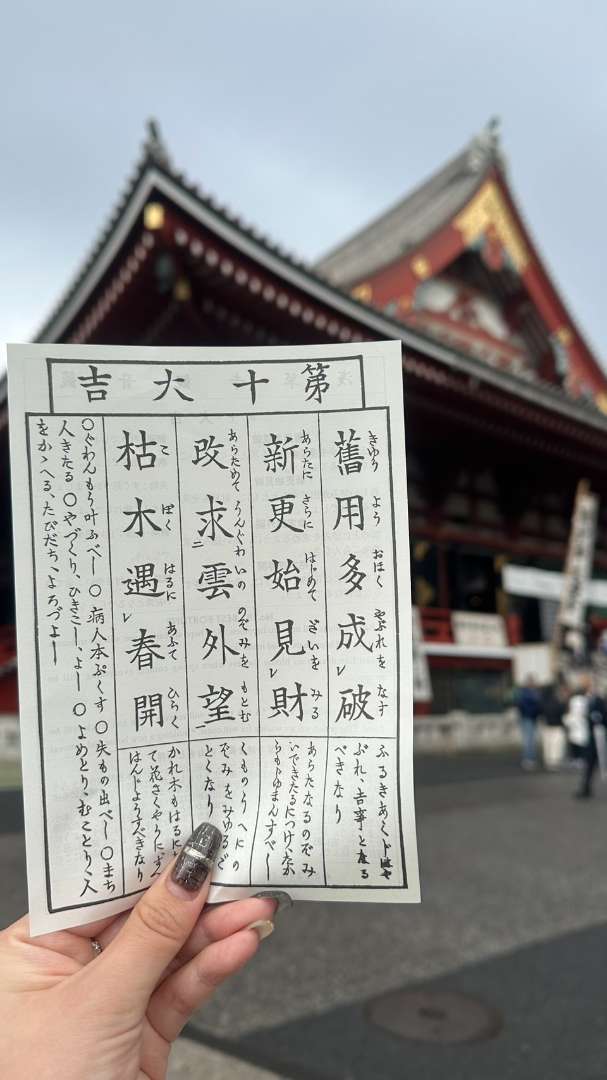 第十大吉
舊用多成破
きゆう よう おほく やぶれを なす
ふるきあくじはや
ぶれ、吉事となる
べきなり
新更始見財
あらたに さらに はじめて ざいを みる
あらたなるのぞみ
いできたるにつけ、たか
らも じゆまんすべし
改求二雲外望一
あらためて うんぐわいの のぞみを もとむ
くものうへにの
ぞみをみゆるご
とくなり
枯木遇レ春開
こ ぼく はるに あふて ひらく
かれ木もはるに
て花さくやうに、すへ
はんじようすべきなり
○ぐわんもう叶ふべし ○病人本ぷくす ○失もの出べし ○まち
人きたる ○やづくり、ひきこし、よし ○よめとり、むことり、人
をかゝへる、たびだち、よろづよし